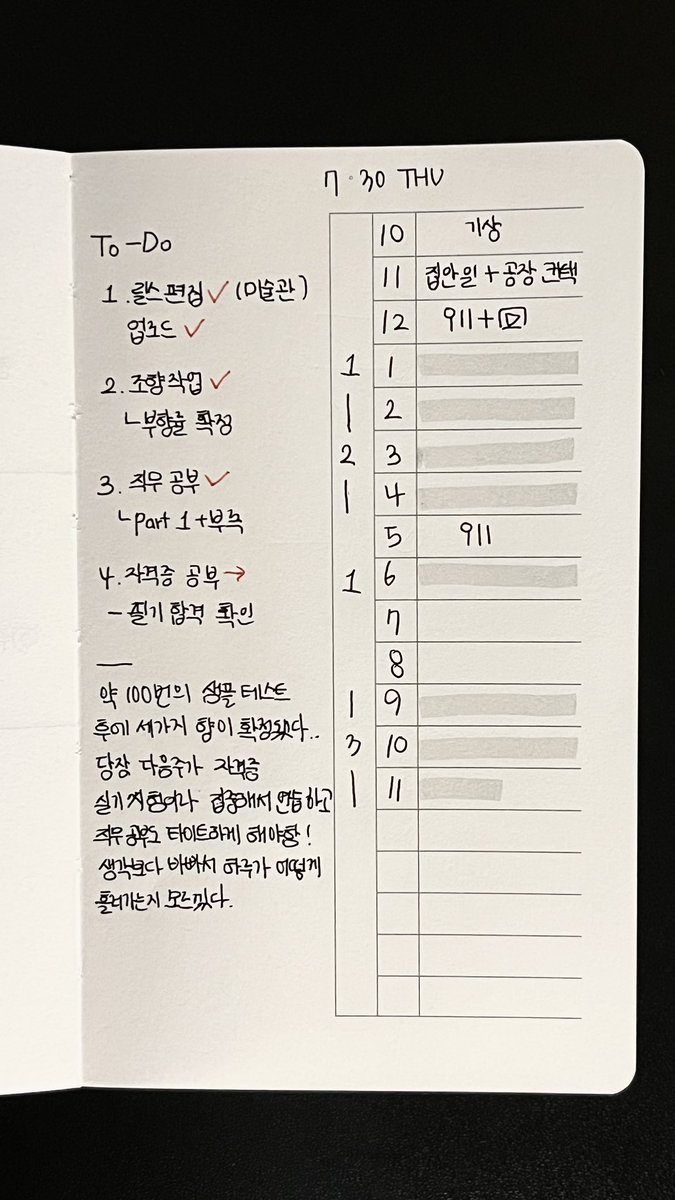 7·30 THU
To-Do
1. 릴스 편집 ✓ (미술관)
업로드 ✓
2. 조향작업 ✓
ㄴ부향률 확정
3. 직무 공부 ✓
ㄴpart 1+부록
4. 자격증 공부 →
- 필기 합격 확인
약 100번의 샘플 테스트
후에 세가지 향이 확정됐다..
당장 다음주가 자격증
실기시험이라 집중해서 연습하고
직무공부도 타이트하게 해야함!
생각보다 바빠서 하루가 어떻게
흘러가는지 모르겠다.
10 기상
11 집안일 + 공장 컨택
12 911+
1 1
| 2
2 3
| 4
5 911
1 6
7
8
| 9
3 10
| 11